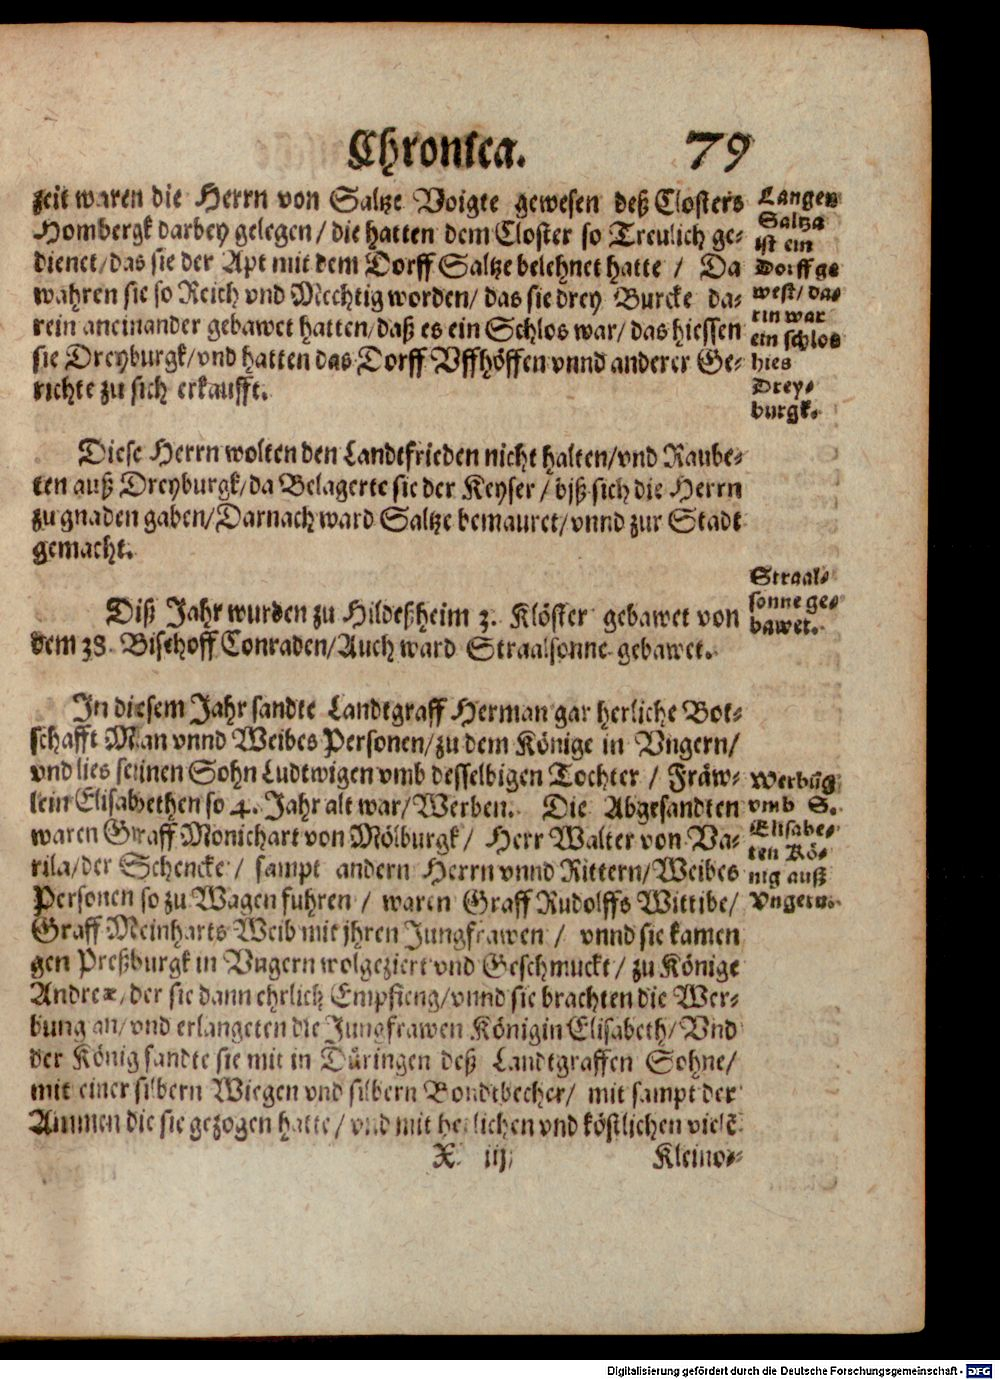 Chronica. 79
zeit waren die Herrn von Saltze Voigte gewesen deß Closters
Hombergk darbey gelegen / die hatten dem Closter so Treulich ge-
dienet / das sie der Apt mit dem Dorff Saltze belehnet hatte / Da
wahren sie so Reich vnd Mechtig worden / das sie drey Burcke da-
rein aneinander gebawet hatten / daß es ein Schlos war / das hiessen
sie Dreyburgk / vnd hatten das Dorff Vffhöffen vnnd anderer Ge-
richte zu sich erkaufft.
Langen
Saltza
ist ein
Dorff ge
west / da-
rin war
ein schlos
hies
Drey-
burgk.
Diese Herrn wolten den Landtfrieden nicht halten / vnd Raube-
ten auß Dreyburgk / da Belagerte sie der Keyser / biß sich die Herrn
zu gnaden gaben / Darnach ward Saltze bemauret / vnnd zur Stadt
gemacht.
Diß Jahr wurden zu Hildeßheim 3. Klöster gebawet von
dem 38. Bischoff Conraden / Auch ward Straalsonne gebawet.
Straal-
sonne ge-
bawet.
In diesem Jahr sandte Landtgraff Herman gar herliche Bot-
schafft Man vnnd Weibes Personen / zu dem Könige in Vngern /
vnd lies seinen Sohn Ludtwigen vmb desselbigen Tochter / Fräw-
lein Elisabethen so 4. Jahr alt war / Werben. Die Abgesandten
waren Graff Monichart von Mölburgk / Herr Walter von Va-
rila / der Schencke / sampt andern Herrn vnnd Rittern / Weibes
Personen so zu Wagen fuhren / waren Graff Rudolffs Wittibe /
Graff Meinharts Weib mit jhren Jungfrawen / vnnd sie kamen
gen Preßburgk in Vngern wolgeziert vnd Geschmuckt / zu Könige
Andreæ, der sie dann ehrlich Empfieng / vnnd sie brachten die Wer-
bung an / vnd erlangeten die Jungfrawen Königin Elisabeth / Vnd
der König sandte sie mit in Düringen deß Landtgraffen Sohne /
mit einer silbern Wiegen vnd silbern Bondtbecher / mit sampt der
Ammen die sie gezogen hatte / vnd mit herlichen vnd köstlichen vielē
Werbūg
vmb S.
Elisabe-
ten Kö-
nig auß
Vngern.
X iij Kleino-
Digitalisierung gefördert durch die Deutsche Forschungsgemeinschaft - DFG